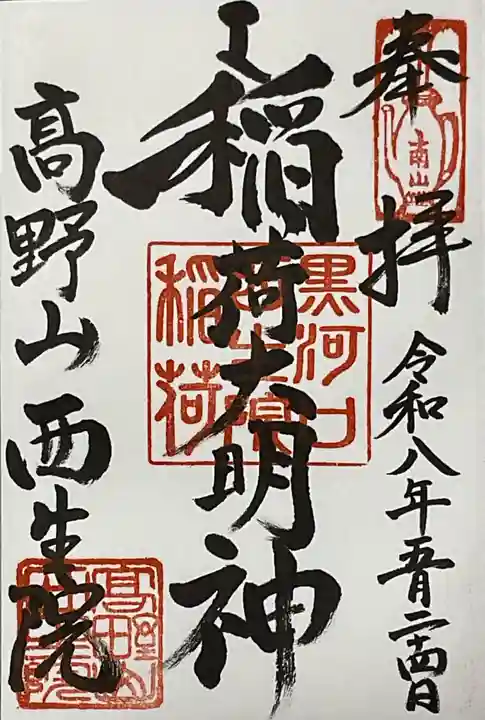 奉拝
令和八年五月二十四日
稲荷大明神
高野山西生院
南山
黒河口
稲荷